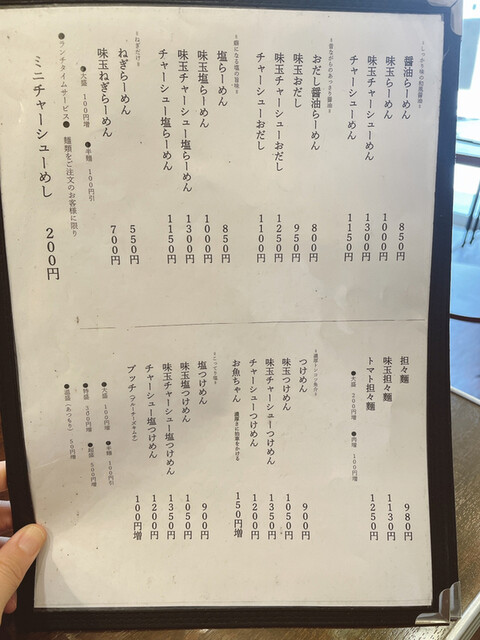 ≡しっかり味の和風醤油≡
醤油らーめん 850円
味玉らーめん 1000円
味玉チャーシューめん 1300円
チャーシューめん 1150円
≡昔ながらのあっさり醤油≡
おだし醤油らーめん 800円
味玉おだし 950円
味玉チャーシューおだし 1250円
チャーシューおだし 1100円
≡癖になる塩の旨味≡
塩らーめん 850円
味玉塩らーめん 1000円
味玉チャーシュー塩らーめん 1300円
チャーシュー塩らーめん 1150円
≡ねぎだけ≡
ねぎらーめん 550円
味玉ねぎらーめん 700円
●大盛 100円増 ●半麺 100円引
●ランチタイムサービス● 麺類をご注文のお客様に限り
ミニチャーシューめし 200円
担々麺 980円
味玉担々麺 1130円
トマト担々麺 1250円
●大盛 200円増 ●肉増 100円増
≡濃厚トンコツ魚介≡
つけめん 900円
味玉つけめん 1050円
味玉チャーシューつけめん 1350円
チャーシューつけめん 1200円
お魚ちゃん 濃厚さに拍車をかける 150円増
≡こってり塩≡
塩つけめん 900円
味玉塩つけめん 1050円
味玉チャーシュー塩つけめん 1350円
チャーシュー塩つけめん 1200円
ブッチ(ブルーチーズキムチ) 100円増
●大盛 100円増 ●半麺 100円引
●特盛 300円増 ●超盛 500円増
●熱盛(あつもり) 50円増